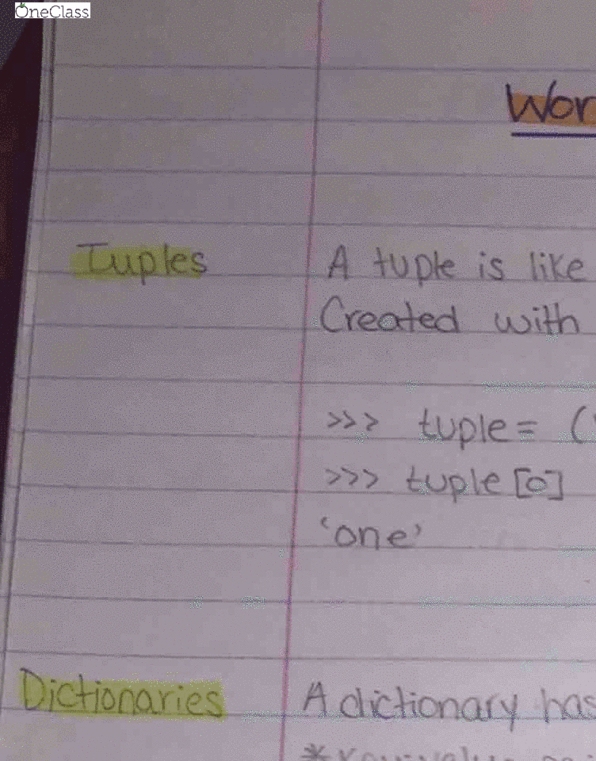 OneClass
Wor
Tuples A tuple is like
Created with
>>> tuple = (
>>> tuple [0]
'one'
Dictionaries A dictionary has